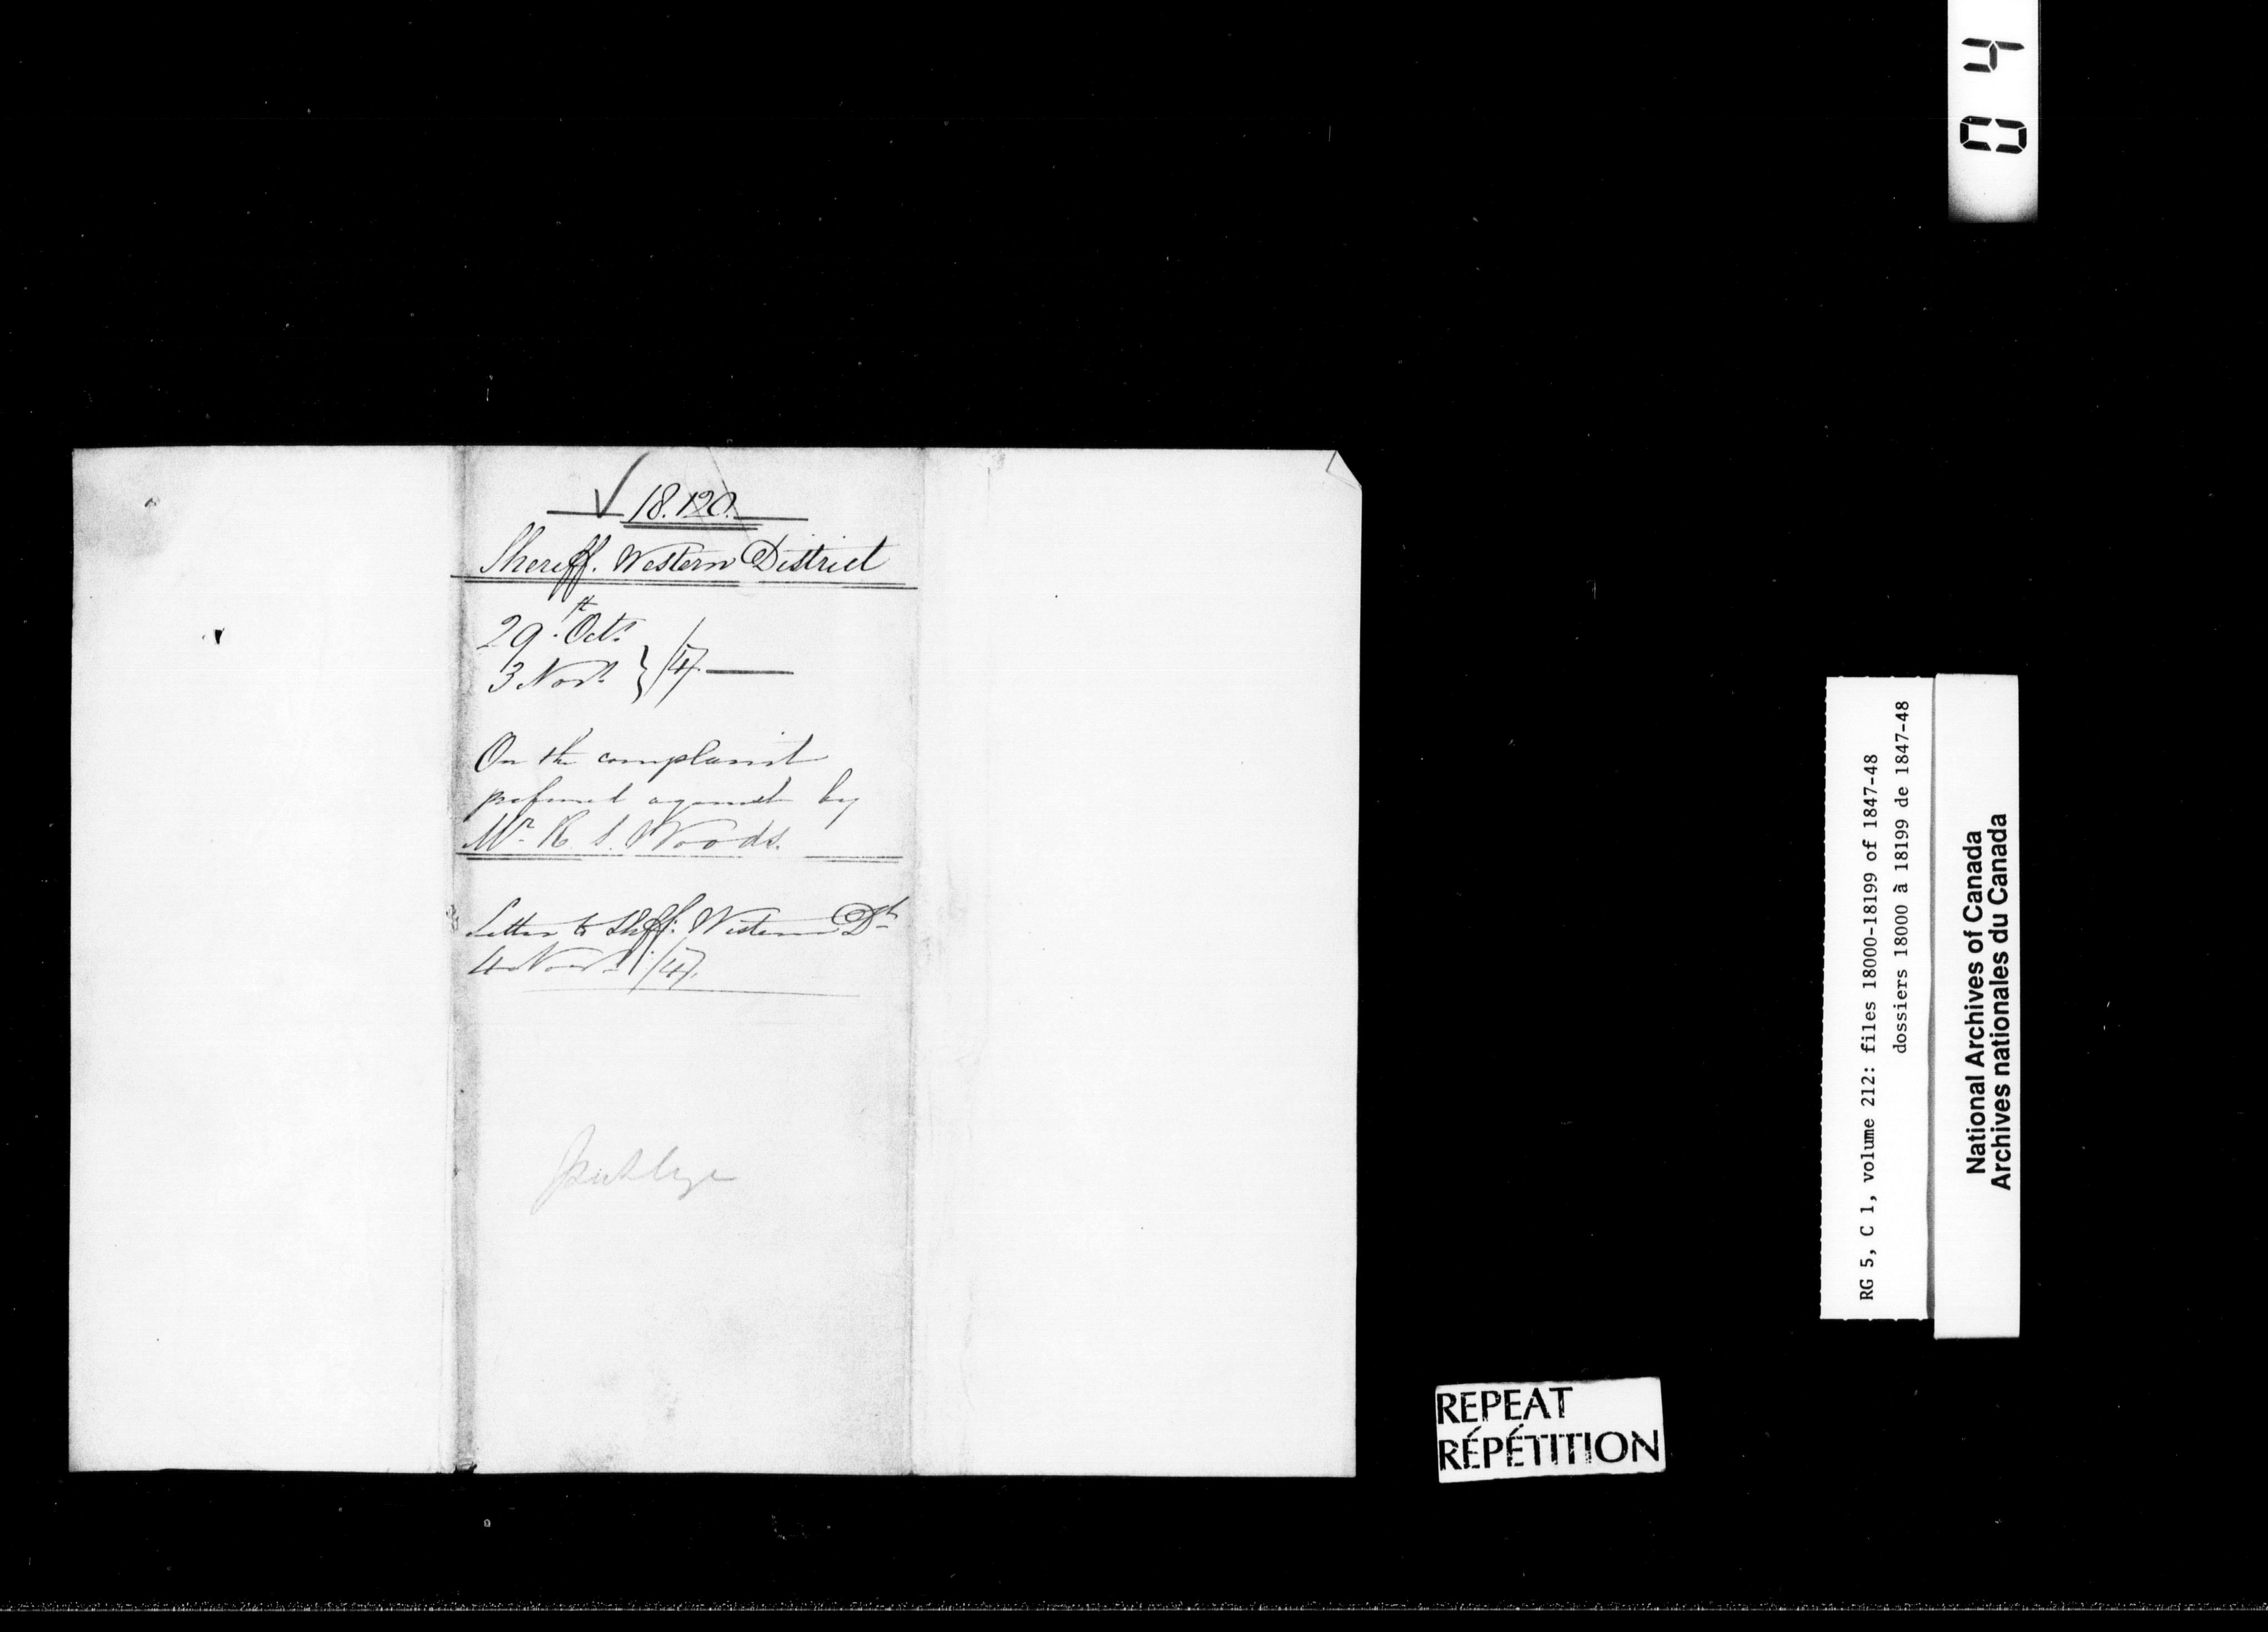 18.120.
Sheriff. Western District
29th Octr
3 Novr } /47.
On the complaint
preferred against by
Mr R. S. Woods.
Letter to Shff. Western Dt
4 Novr /47.
04
RG 5, C 1, volume 212: files 18000-18199 of 1847-48
dossiers 18000 à 18199 de 1847-48
National Archives of Canada
Archives nationales du Canada
REPEAT
RÉPÉTITION